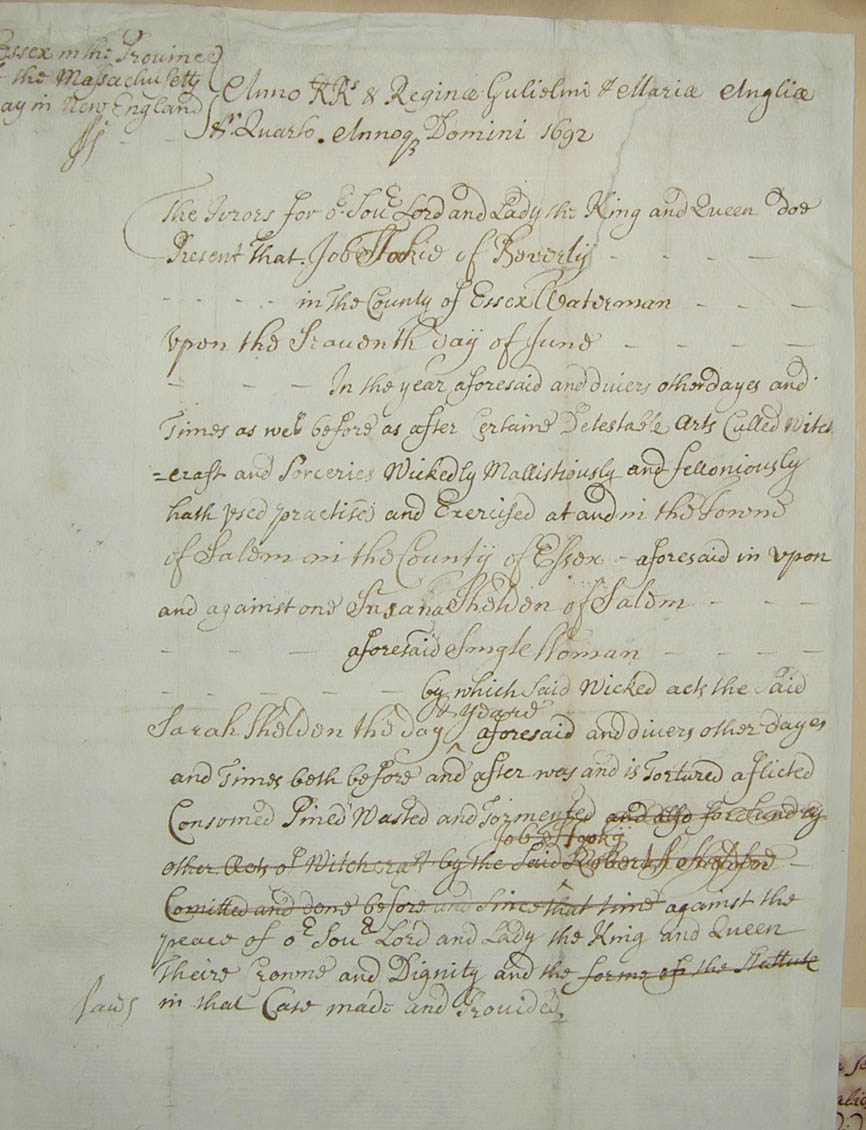 Essex in the Province
the Massachusetts
ay in New England
Anno RRs & Reginæ Gulielmi & Mariæ Angliæ
&c Quarto. Annoq Domini 1692
The Jurors for or Sour Lord and Lady the King and Queen doe
Present That. Job Tookie of Beverly - - - -
- - - - in the County of Essex Waterman - - -
Vpon the Seauenth Day of June - - - -
- - - In the year aforesaid and divers other dayes and
Times as well before as after Certaine Detestable Arts Called Witch
=craft and Sorceries Wickedly Mallishiously and felloniously
hath vsed practised and Exercised at and in the Towne
of Salem in the County of Essex - aforesaid in vpon
and against one Susana Shelden of Salem - - -
- - - aforesaid Single Woman - - - -
- - - - - by which Said Wicked acts the Said
& yeare
Sarah Shelden the Day ^ aforesaid and divers other Dayes
and Times both before and after was and is Tortured aflicted
Consumed Pined Wasted and Tormented and also for sundry
Job Tooky
other Acts of Witchcraft by the Said ^ -
Comitted and done before and Since that time against the
peace of or Sour Lord and Lady the King and Queen
Theire Crowne and Dignity and the forme of the Stattute
laws in that Case made and Prouided.